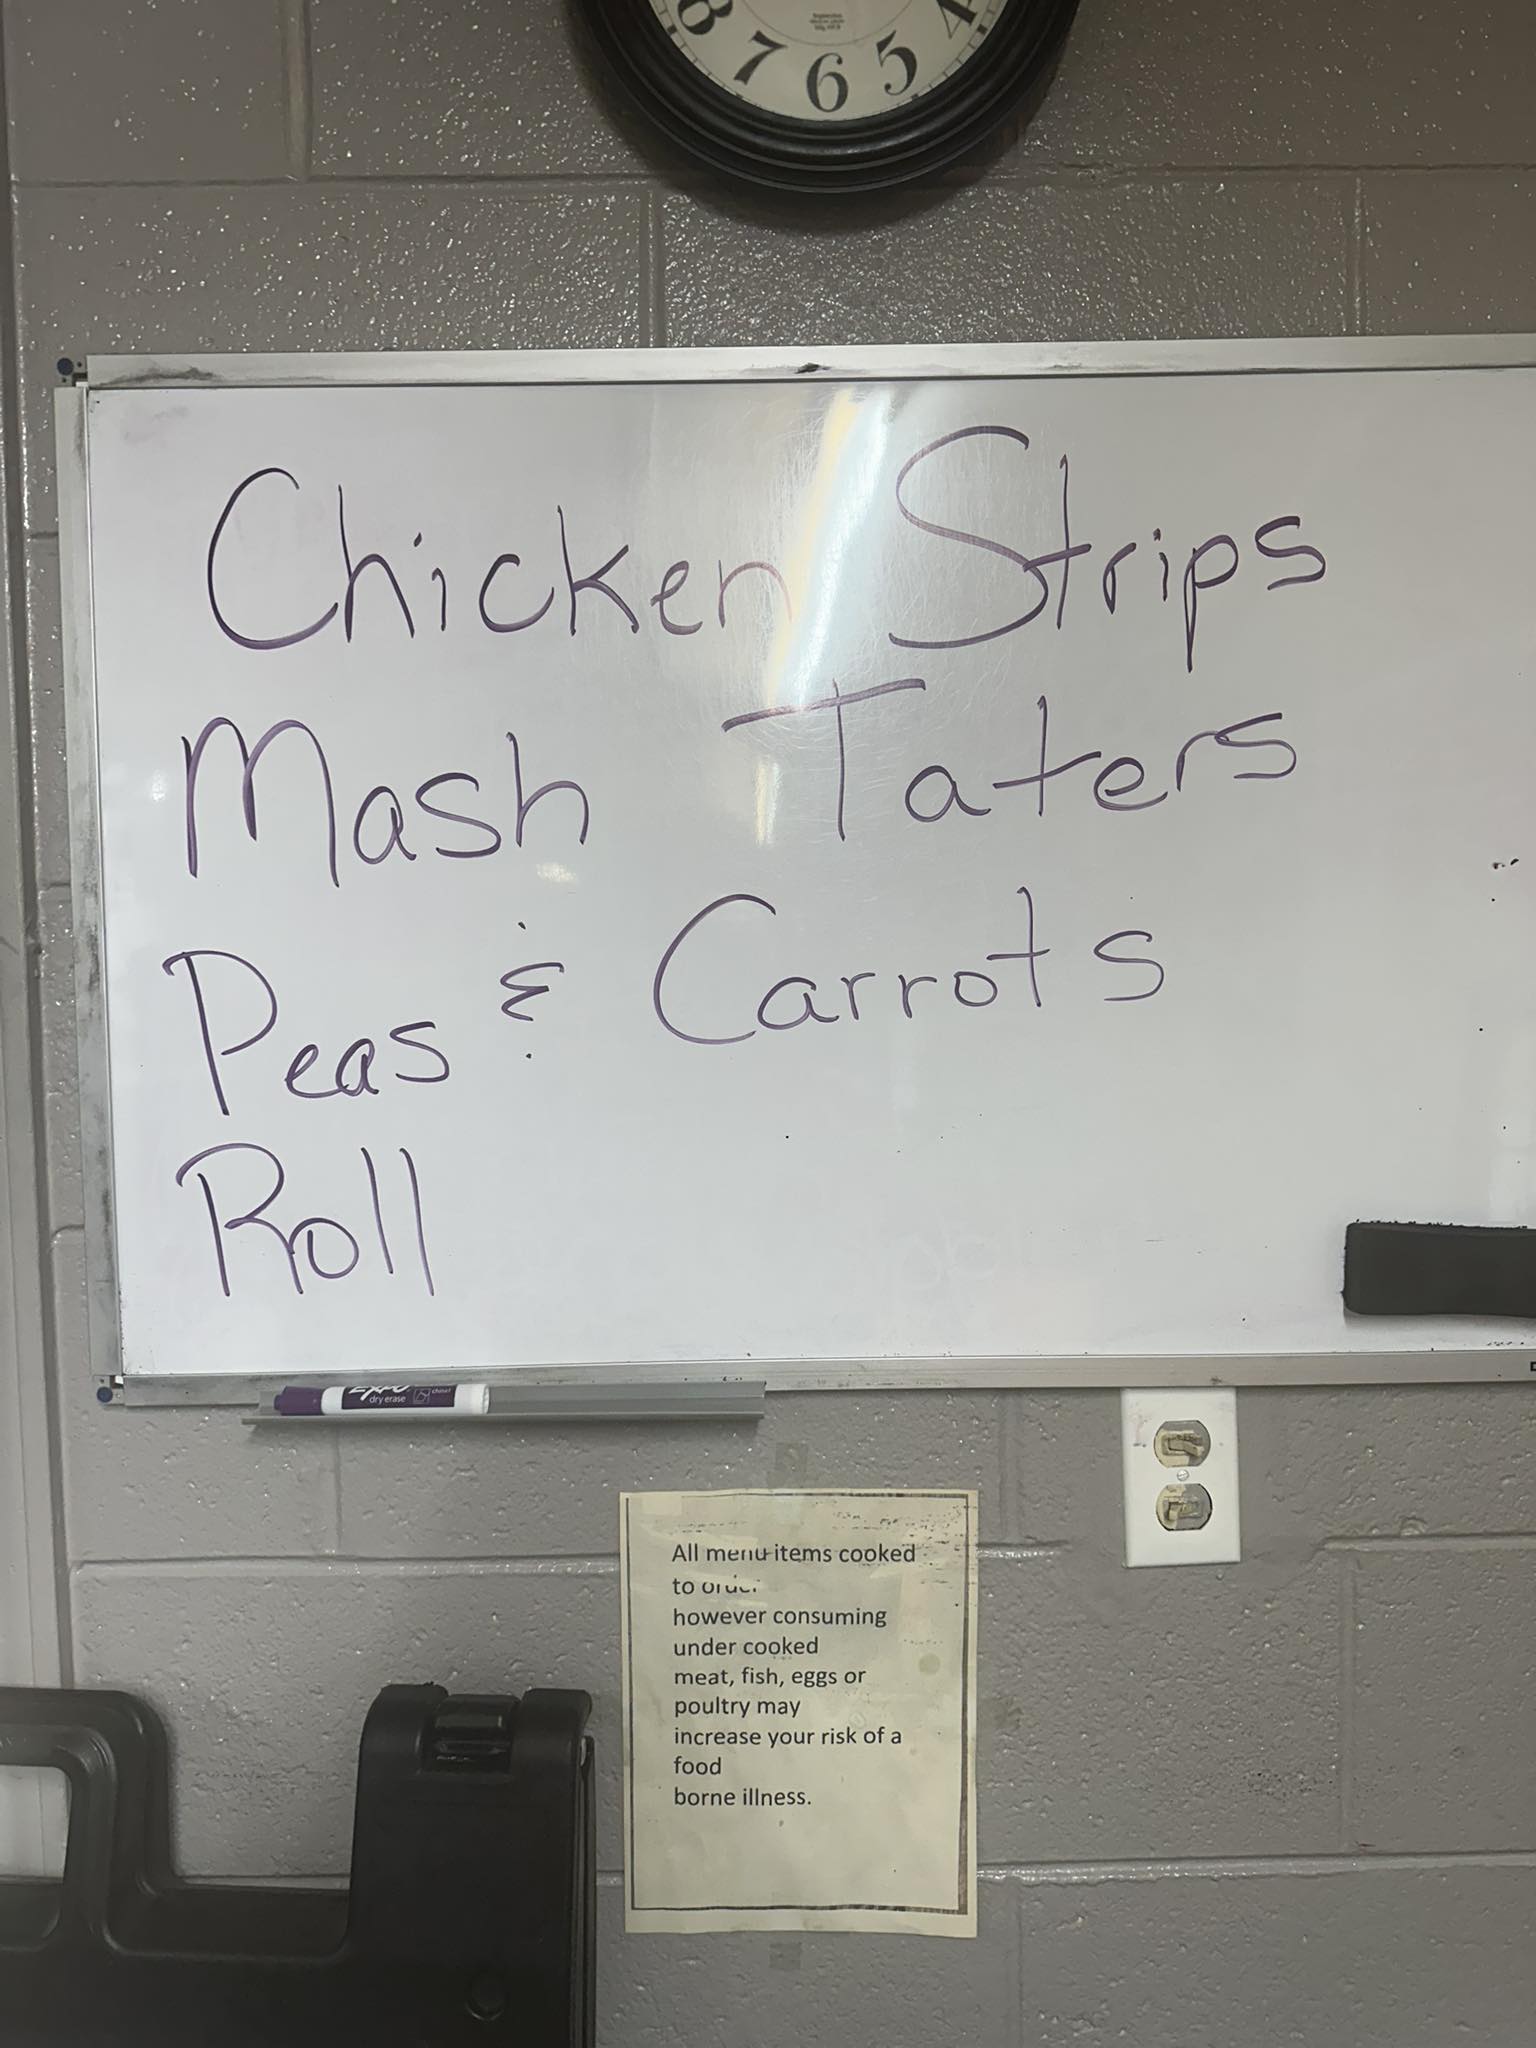 8 7 6 5 4
Chicken Strips
Mash Taters
Peas & Carrots
Roll
EXPO
dry erase chisel
All menu items cooked
to order
however consuming
under cooked
meat, fish, eggs or
poultry may
increase your risk of a
food
borne illness.